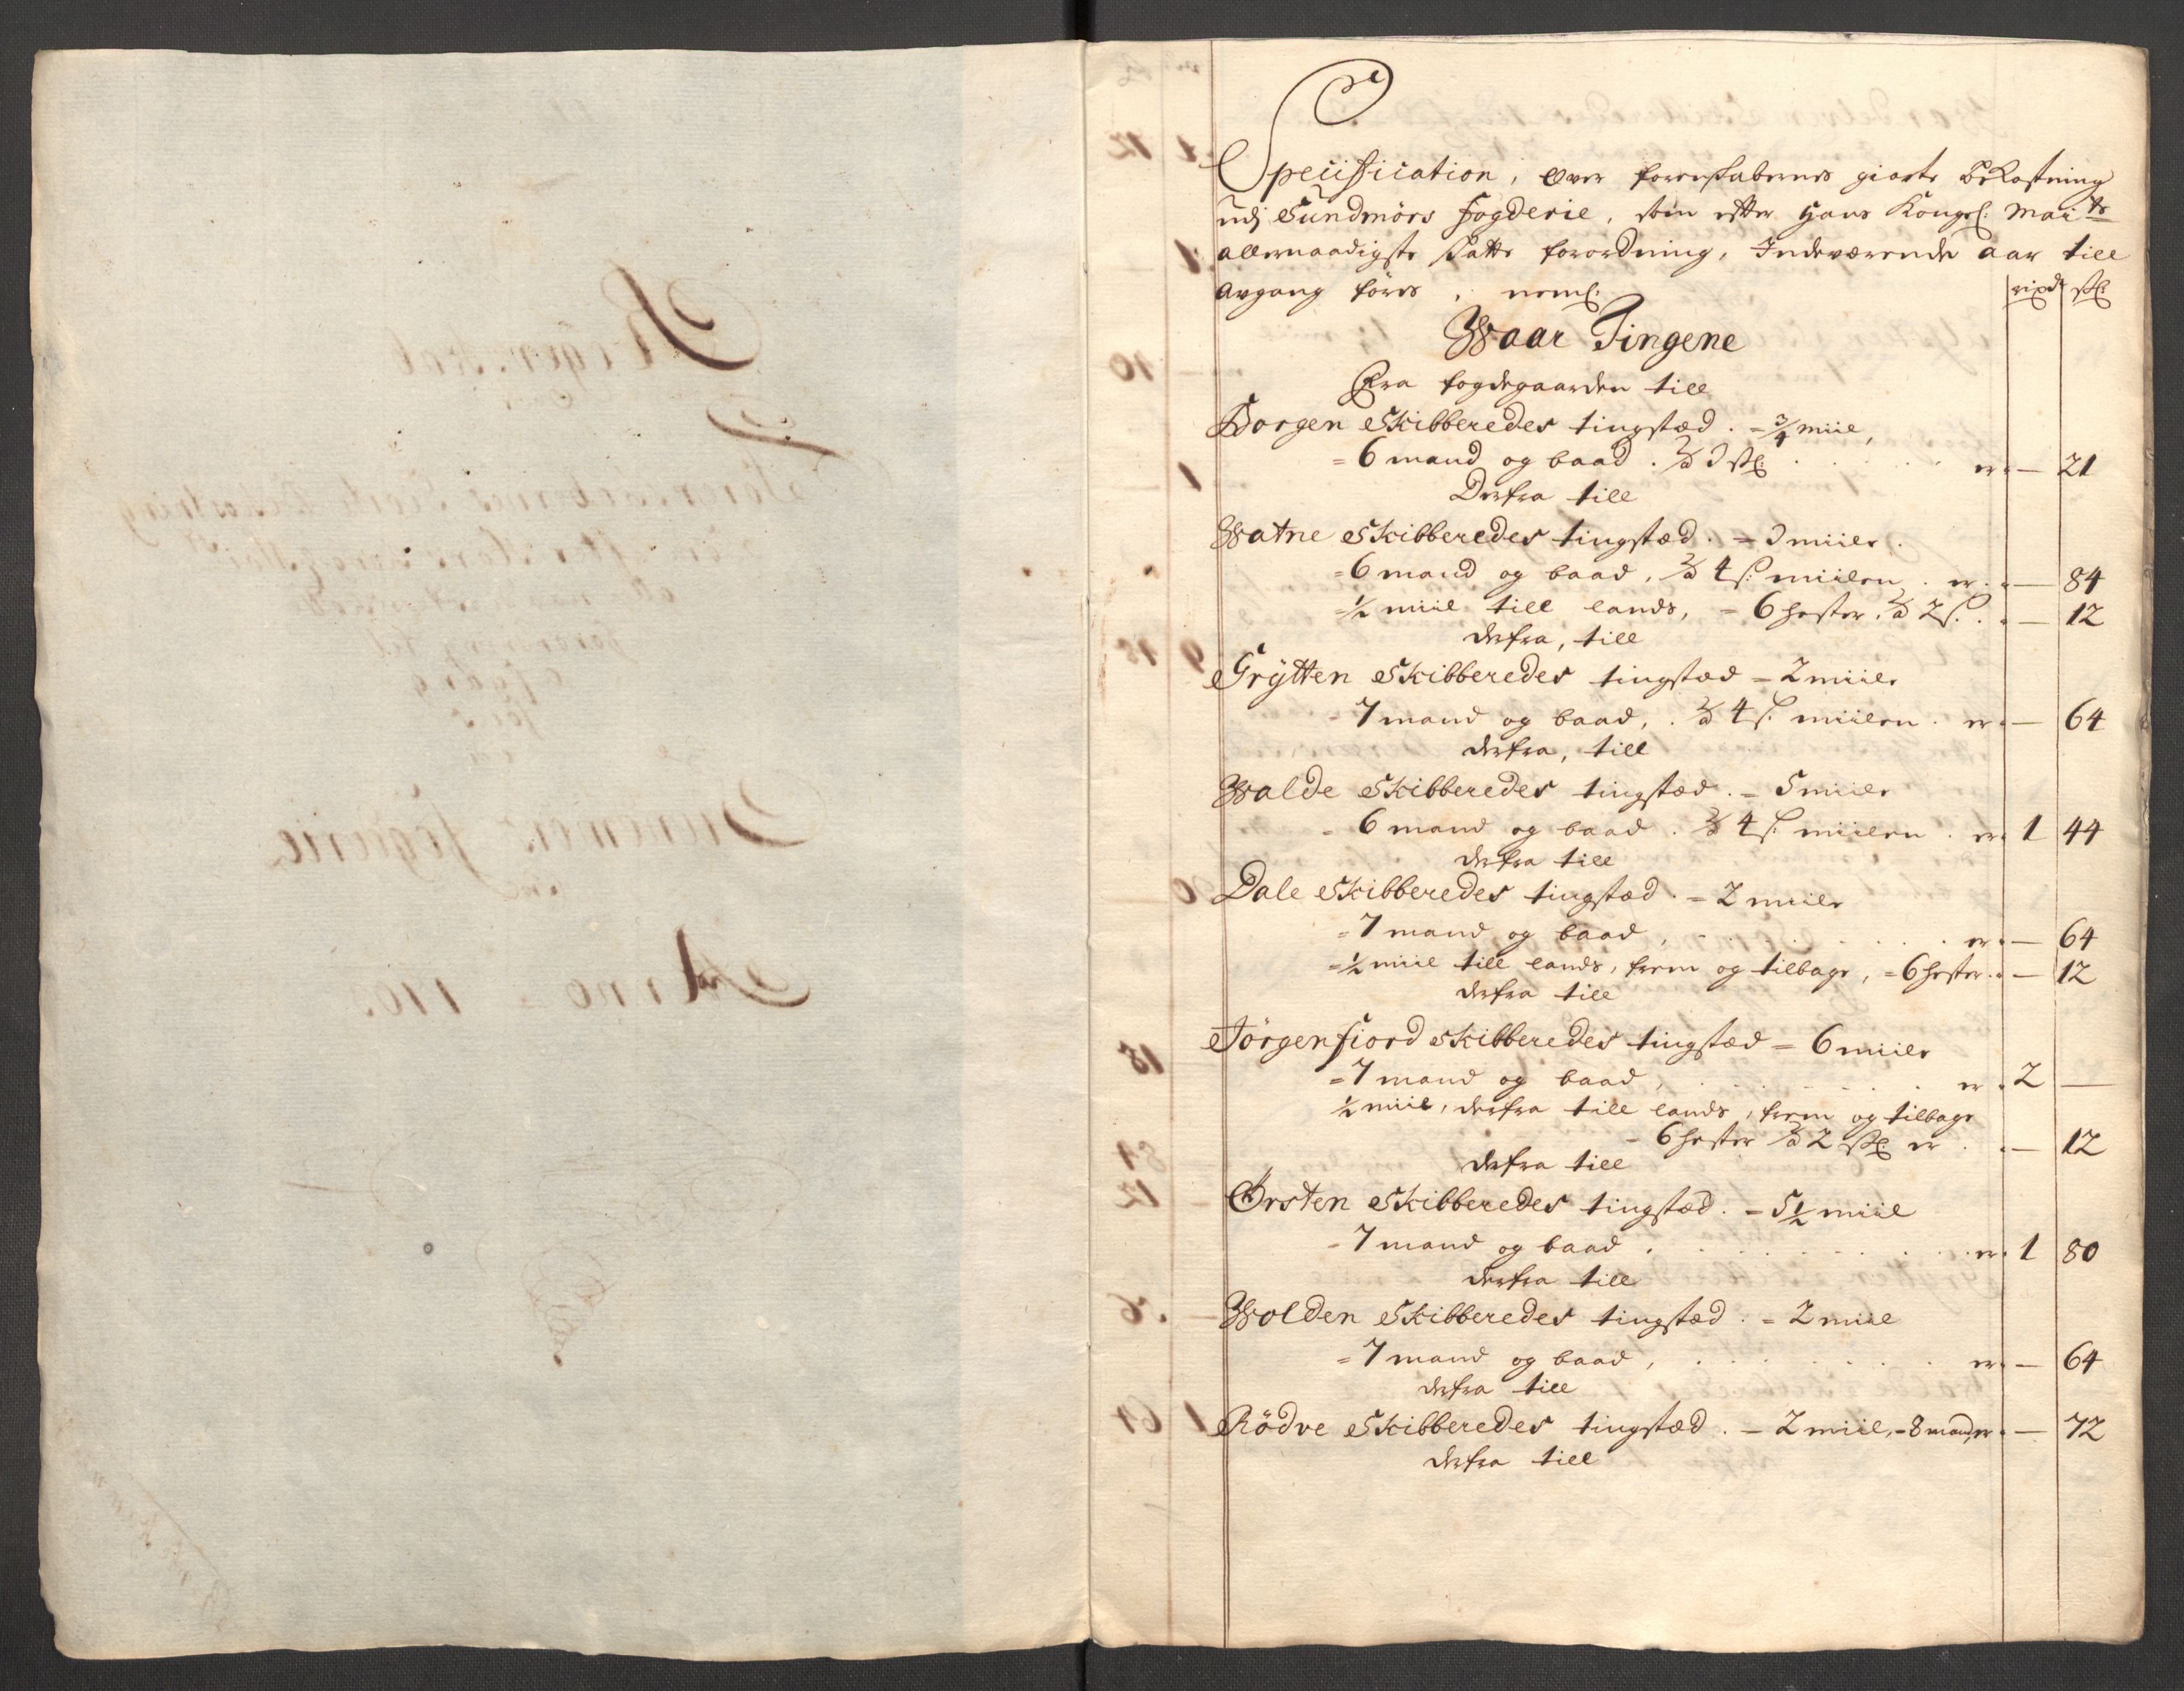 Specification, over forenschabernes giorte bekostning
udj Sundmörs fogderie, som efter Hans Kongl: Maits
allernaadigste Skatte forordning, Indeværende aar till
avgang föres, neml:
rixdr ẞl:
Waar Tingene
Fra fogdegaarden till
Borgen Skibberedes tingstæd. = 3/4 miil,
= 6 mand og baad. à 3 ẞl: er — 21
Derfra till
Watne Skibberedes tingstæd. = 3 miile.
= 6 mand og baad, à 4 ẞ: miilen. er — 84
= 1/2 miil till lands, = 6 hester, à 2 ẞ. — 12
derfra, till
Grÿtten Skibberedes tingstæd = 2 miile
7 mand og baad, à 4 ẞ: miilen. er — 64
derfra, till
Walde Skibberedes tingstæd. = 5 miile
= 6 mand og baad. à 4 ẞ: miilen. er 1 44
derfra till
Dale Skibberedes tingstæd. = 2 miile
= 7 mand og baad, er — 64
= 1/2 miil till lands, frem og tilbage, = 6 hester. — 12
derfra till
Jörgenfiord Skibberedes tingstæd = 6 miile
= 7 mand og baad, er 2 —
1/2 miil, derfra till lands, frem og tilbage
= 6 hester à 2 ẞl: er — 12
derfra till
Örsten Skibberedes tingstæd. = 5 1/2 miil
= 7 mand og baad. er 1 80
derfra till
Wolden Skibberedes tingstæd. = 2 miil
= 7 mand og baad, er — 64
derfra till
Rödve Skibberedes tingstæd. = 2 miil, = 8 mand, er — 72
derfra till